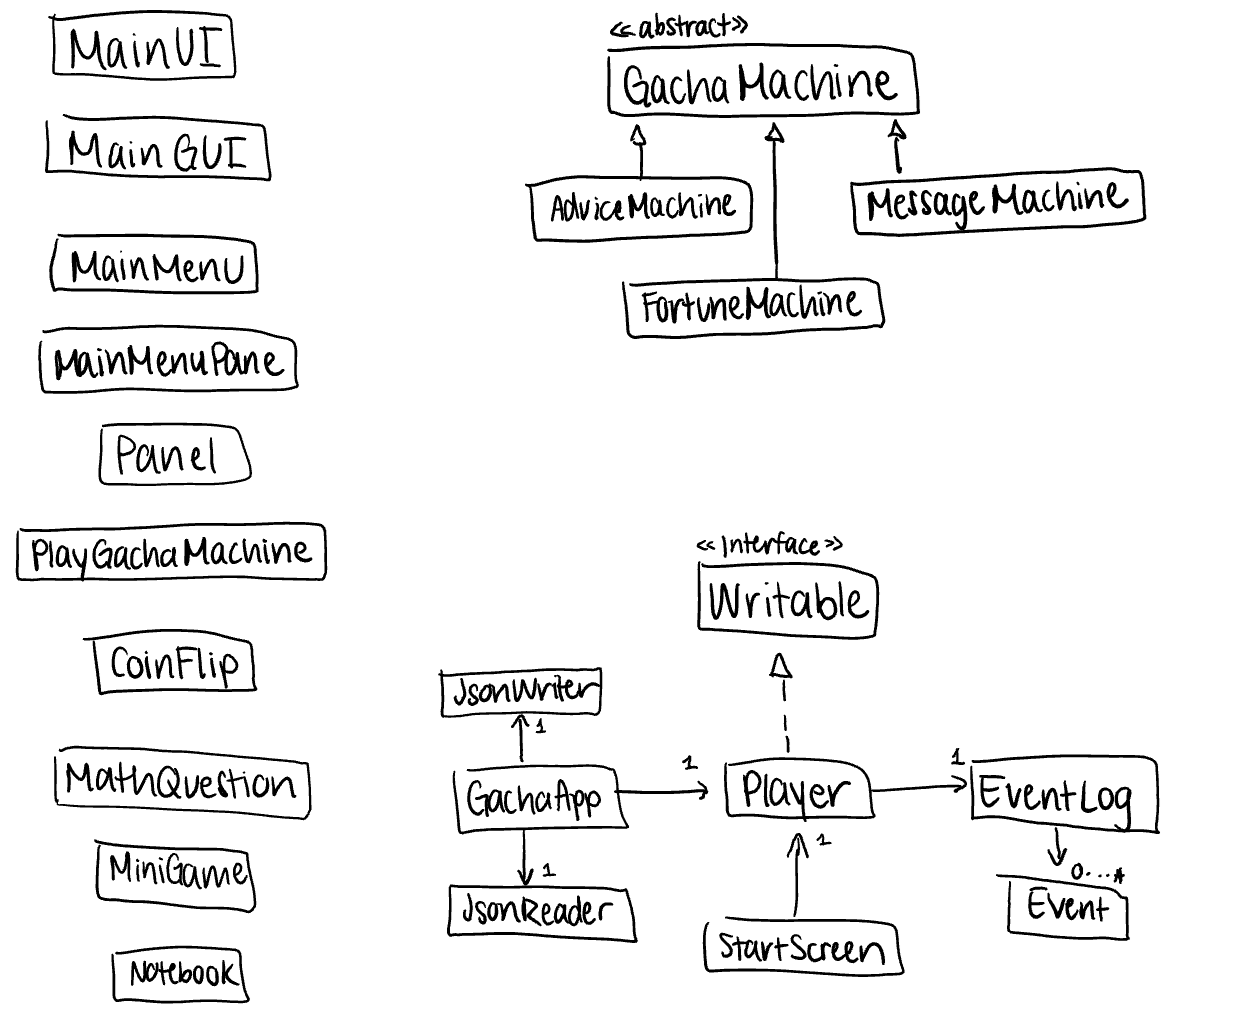 MainUI
MainGUI
MainMenu
MainMenuPane
Panel
PlayGachaMachine
CoinFlip
MathQuestion
MiniGame
Notebook
<<abstract>>
GachaMachine
AdviceMachine
MessageMachine
FortuneMachine
<<Interface>>
Writable
JsonWriter
1
GachaApp
1
Player
1
EventLog
1
JsonReader
1
StartScreen
0...*
Event